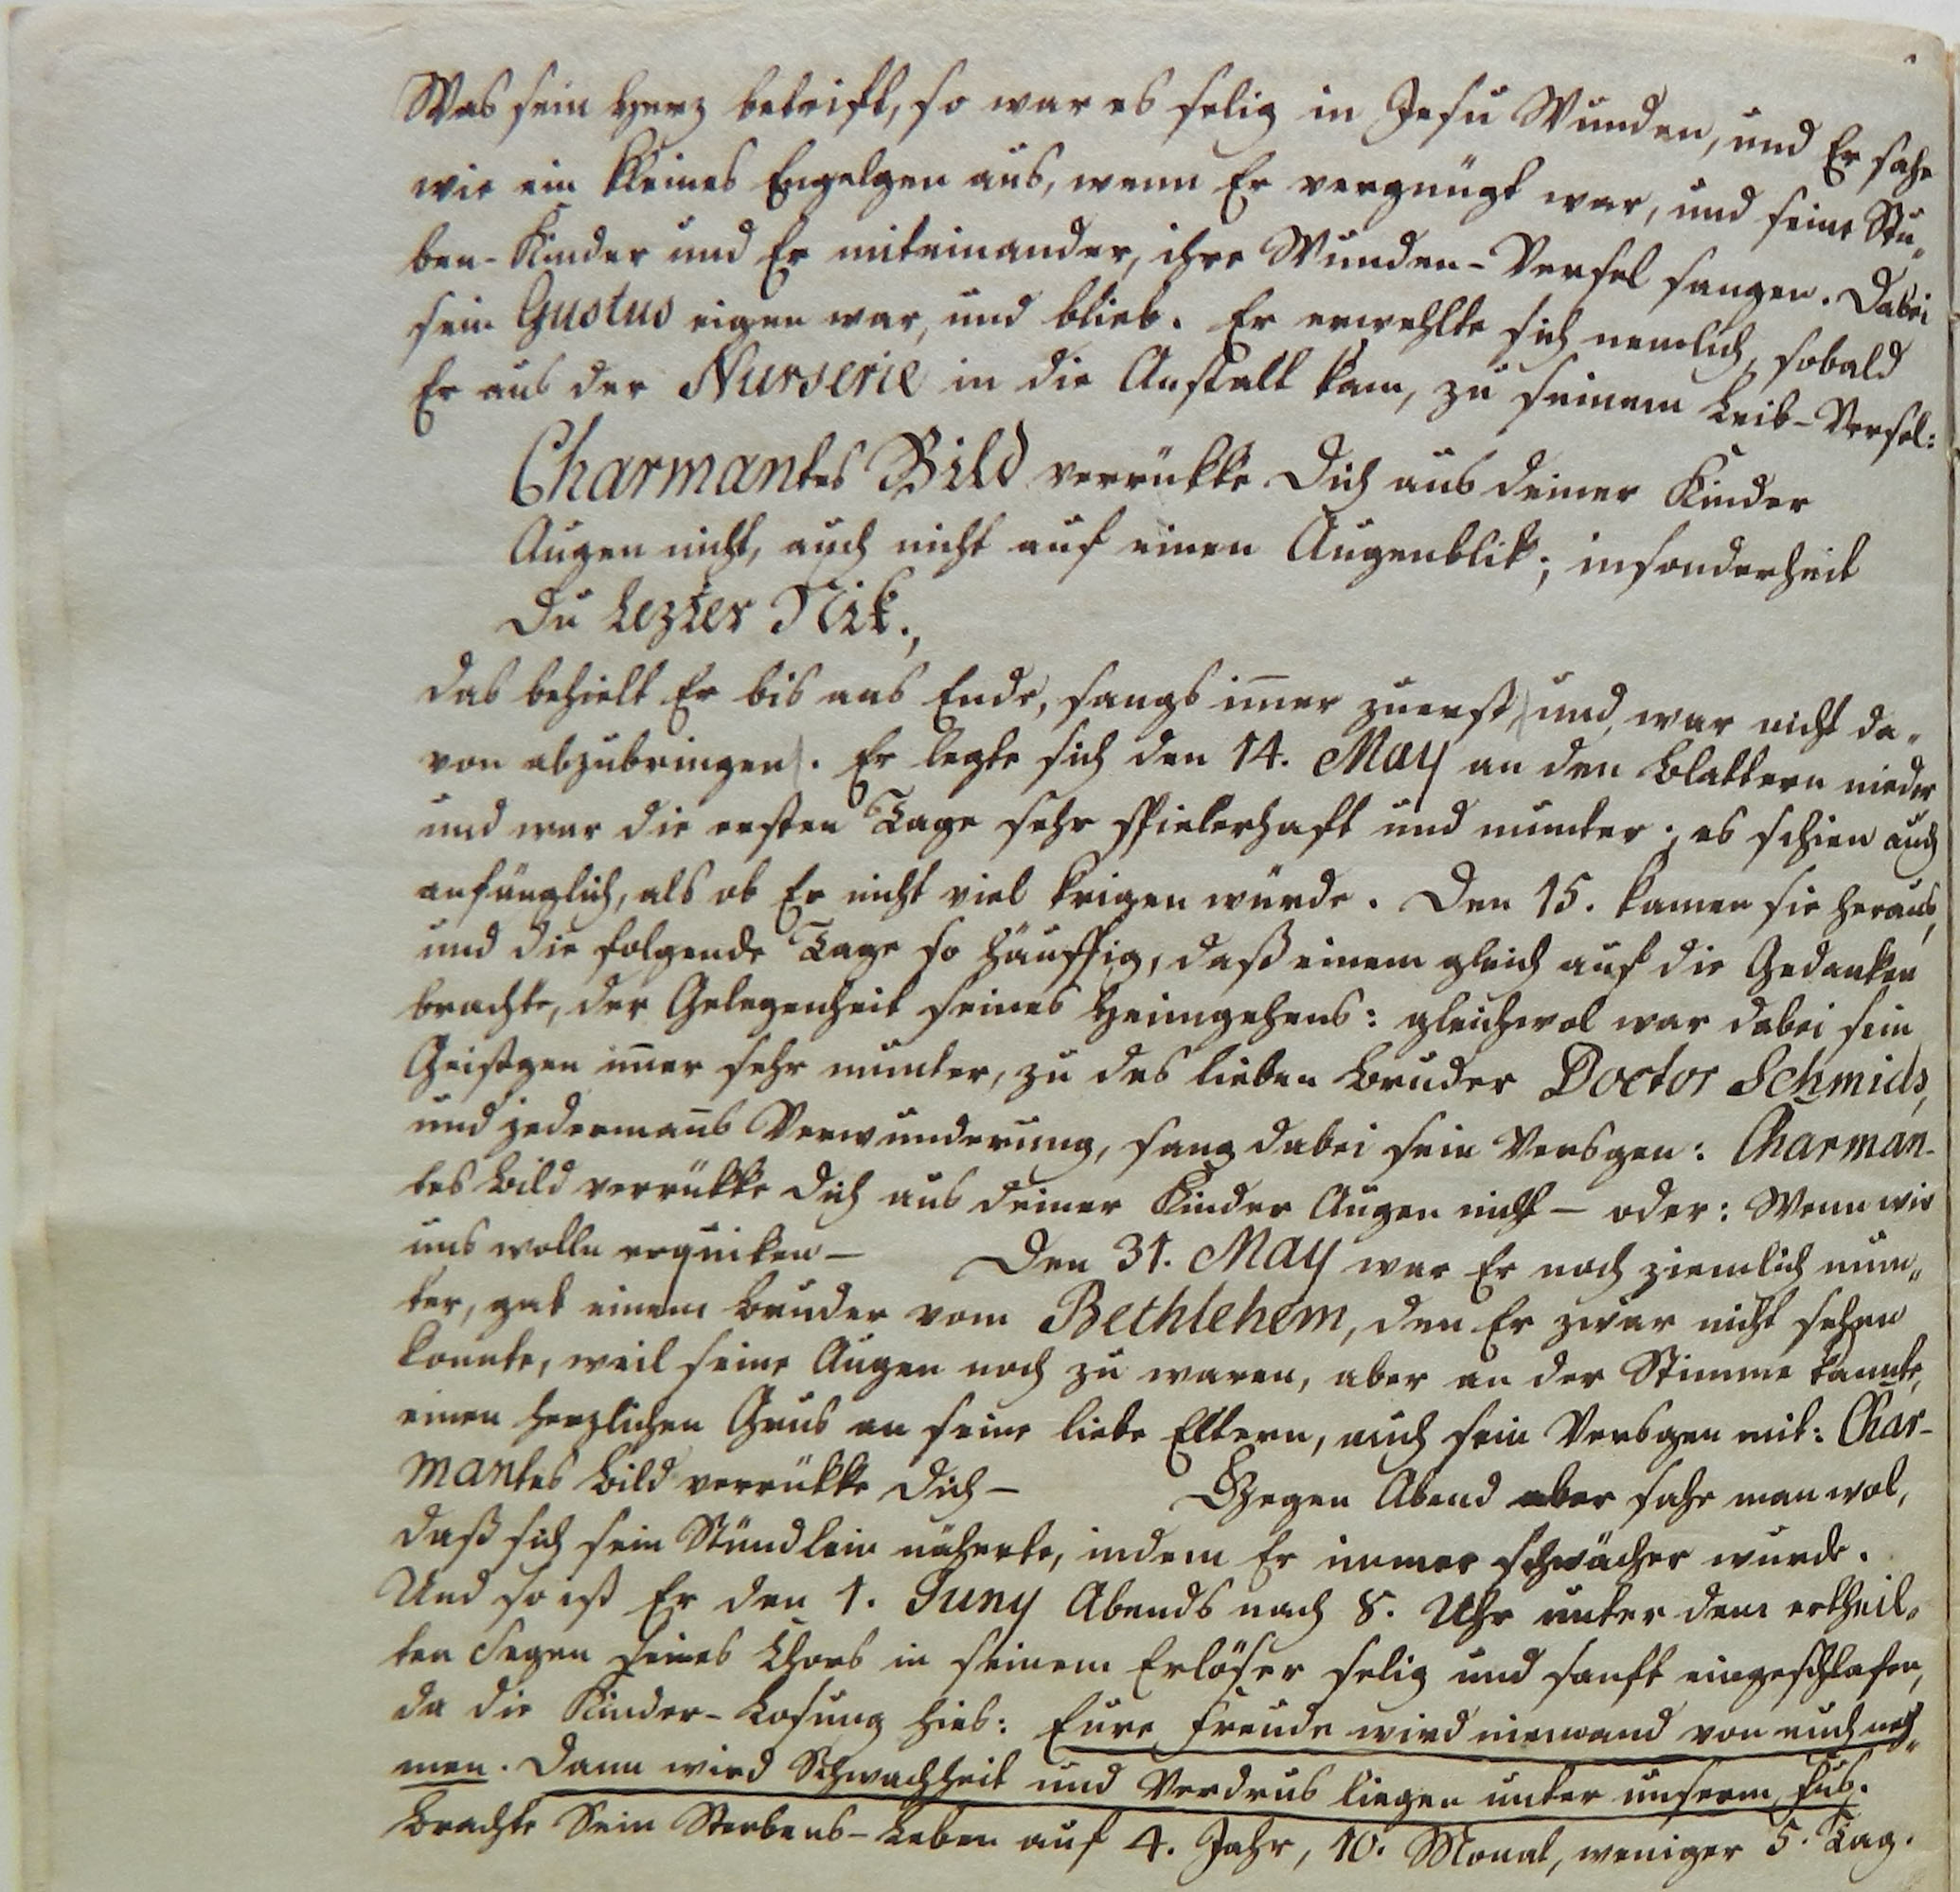 Was sein Herz betrift, so war es selig in Jesu Wunden, und Er sahe
wie ein kleines Engelgen aus, wenn Er vergnügt war, und seine Stu„
ben-Kinder und Er miteinander, ihre Wunden-Versel sangen. Dabei
sein Gustus eigen war, und blieb. Er erwehlte sich nemlich, sobald
Er aus der Nurserie in die Anstalt kam, zu seinem Leib-Versel:
Charmantes Bild verrükke Dich aus deiner Kinder
Augen nicht, auch nicht auf einen Augenblik; insonderheit
Du lezter Nik.,
das behielt Er bis ans Ende, sangs im̄er zuerst, und war nicht da„
von abzubringen. Er legte sich den 14. May an den Blattern nieder
und war die ersten Tage sehr spielerhaft und munter; es schien auch
anfänglich, als ob Er nicht viel krigen würde. Den 15. kamen sie heraus,
und die folgende Tage so häuffig, daß einem gleich auf die Gedanken
brachte, der Gelegenheit seines Heimgehens: gleichwol war dabei sein
Geistgen im̄er sehr munter, zu des lieben Bruder Doctor Schmids,
und jederman̄s Verwunderung, sang dabei sein Versgen: Charman-
tes Bild verrükke Dich aus deiner Kinder Augen nicht — oder: Wenn wir
uns wolln erquiken — Den 31. May war Er noch ziemlich mun„
ter, gab einem Bruder vom Bethlehem, den Er zwar nicht sehen
konnte, weil seine Augen noch zu waren, aber an der Stimme kannte,
einen herzlichen Grus an seine liebe Eltern, auch sein Versgen mit: Char-
mantes Bild verrükke Dich — Gegen Abend aber sahe man wol,
daß sich sein Stündlein näherte, indem Er immer schwächer wurde.
Und so ist Er den 1. Juny Abends nach 8. Uhr unter dem ertheil„
ten Segen seines Chors in seinem Erlöser selig und sanft eingeschlafen,
da die Kinder-Losung hies: Eure Freude wird niemand von euch neh„
men. Dann wird Schwachheit und Verdrus liegen unter unserm Fus.
Brachte Sein Sterbens-Leben auf 4. Jahr, 10. Monat, weniger 5. Tag.